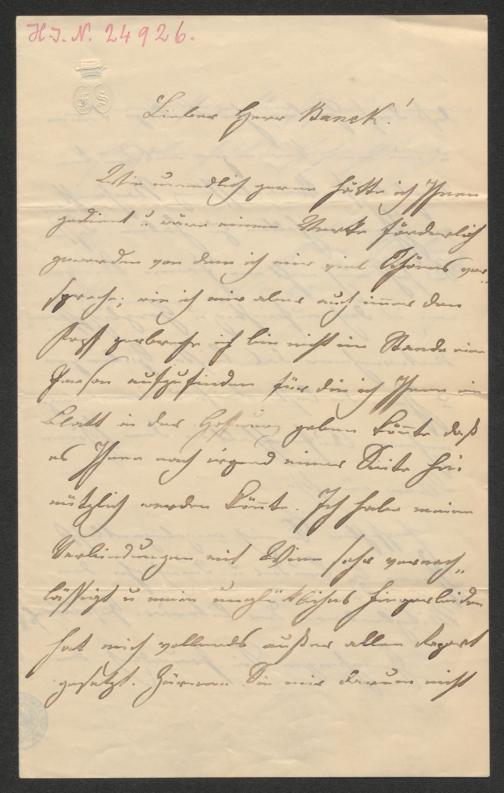 H.I.N. 24926.
Lieber Herr Banck!
Wie unendlich gerne hätte ich Ihnen
gedient u. wäre einem Werke förderlich
geworden von dem ich mir viel Schönes ver-
spreche; wie ich mir aber auch immer den
Kopf zerbreche ich bin nicht im Stande eine
Person aufzufinden für die ich Ihnen ein
Blatt in der Hoffnung geben könnte daß
es Ihnen nach irgend einer Seite hin
nützlich werden könnte. Ich habe meine
Verbindungen mit Wien sehr vernach-
lässigt u mein unglückliches Fingerleiden
hat mich vollends außer allen Raport
gesetzt. Zürnen Sie mir darum nicht